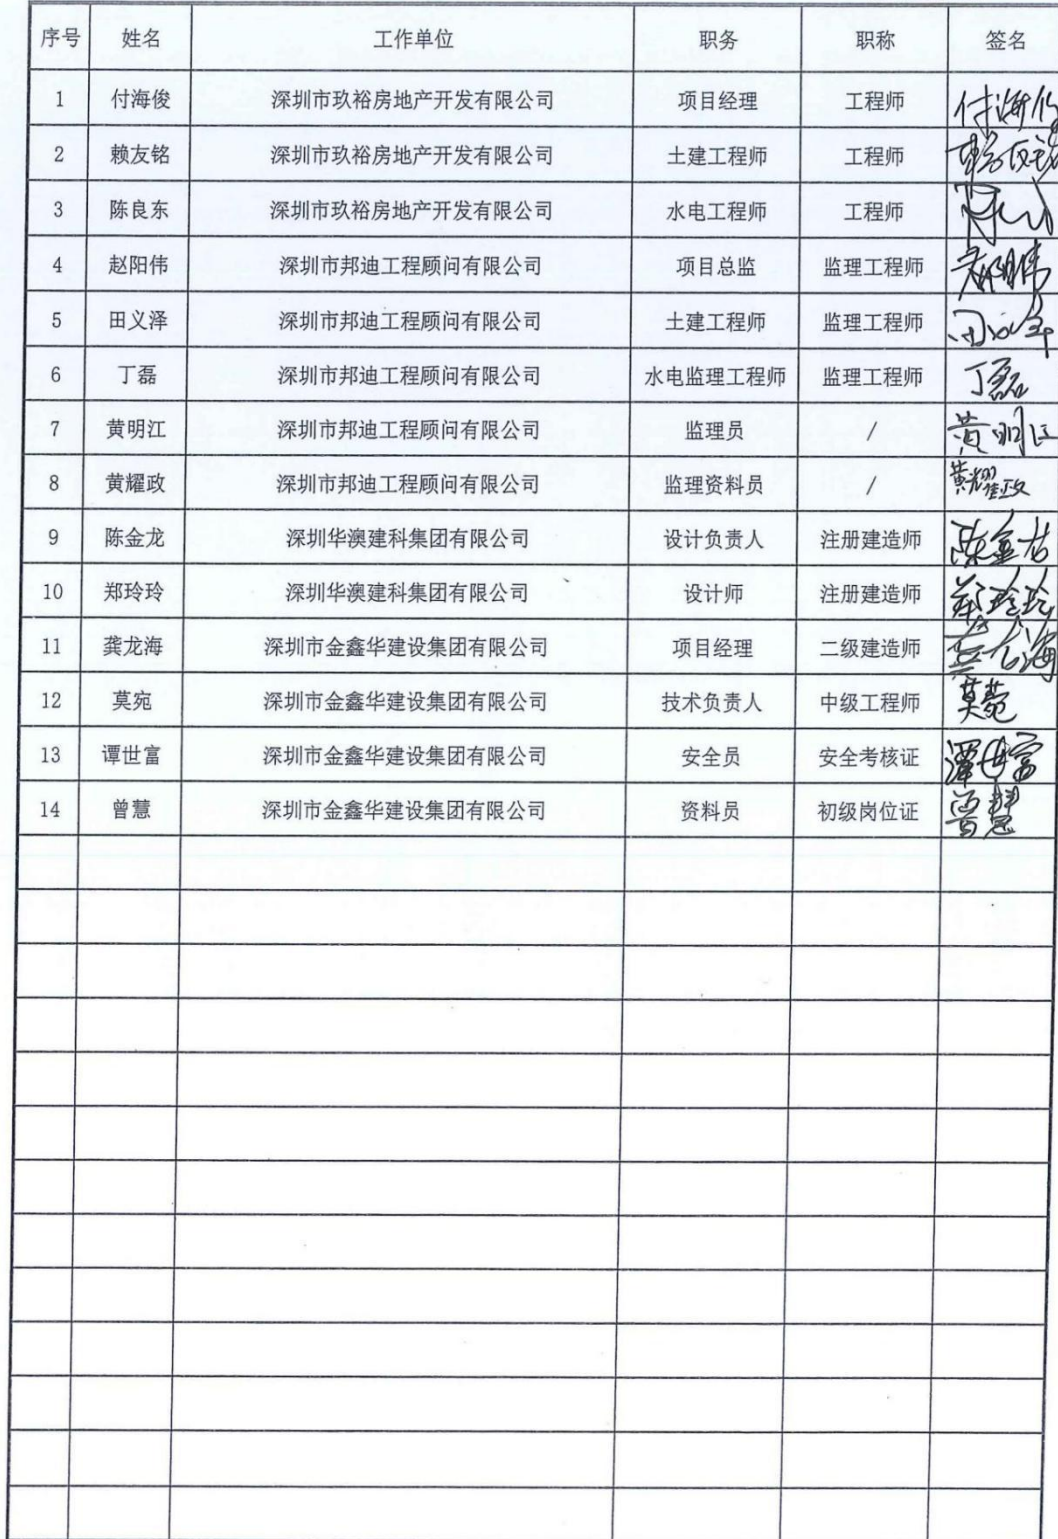 序号 姓名 工作单位 职务 职称 签名
1 付海俊 深圳市玖裕房地产开发有限公司 项目经理 工程师 付海俊
2 赖友铭 深圳市玖裕房地产开发有限公司 土建工程师 工程师 赖友铭
3 陈良东 深圳市玖裕房地产开发有限公司 水电工程师 工程师
4 赵阳伟 深圳市邦迪工程顾问有限公司 项目总监 监理工程师 赵阳伟
5 田义泽 深圳市邦迪工程顾问有限公司 土建工程师 监理工程师 田义泽
6 丁磊 深圳市邦迪工程顾问有限公司 水电监理工程师 监理工程师 丁磊
7 黄明江 深圳市邦迪工程顾问有限公司 监理员 / 黄明江
8 黄耀政 深圳市邦迪工程顾问有限公司 监理资料员 / 黄耀政
9 陈金龙 深圳华澳建科集团有限公司 设计负责人 注册建造师 陈金龙
10 郑玲玲 深圳华澳建科集团有限公司 设计师 注册建造师 郑玲玲
11 龚龙海 深圳市金鑫华建设集团有限公司 项目经理 二级建造师 龚龙海
12 莫宛 深圳市金鑫华建设集团有限公司 技术负责人 中级工程师 莫菀
13 谭世富 深圳市金鑫华建设集团有限公司 安全员 安全考核证 谭世富
14 曾慧 深圳市金鑫华建设集团有限公司 资料员 初级岗位证 曾慧